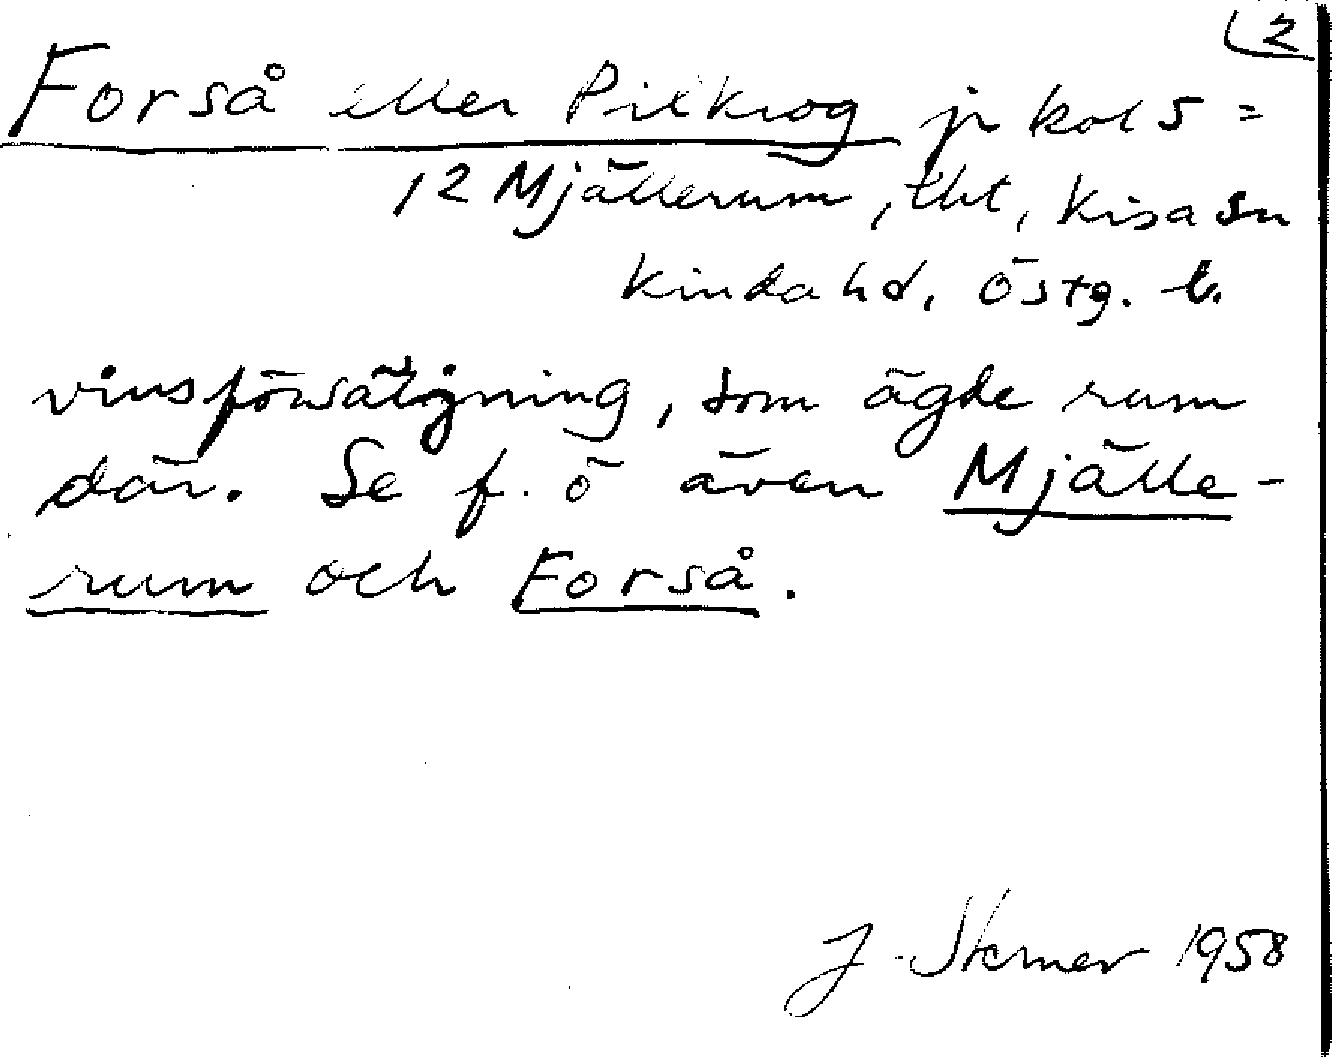 2
Forså eller Pilkrog jr kol 5 =
12 Mjällerum, tht, Kisa sn
Kinda hd, Östg. l.
vinsförsäljning, som ägde rum
där. Se f. ö även Mjälle-
rum och Forså.
J. 1958